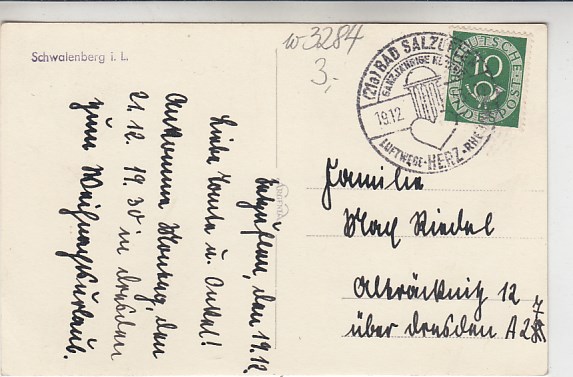 w 3284
3,-
Schwalenberg i. L.
Salzuflen, den 19.12.
Liebe Tante u. Onkel!
Ankomme Montag, den
21.12. 19.30 in Dresden
zum Weihnachtsurlaub.
(21a) BAD SALZUFLEN
GANZJÄHRIGE
19.12.
LUFTWEGE-HERZ-RHEUMA
DEUTSCHE
10
BUNDESPOST
Familie
Max Riedel
Alträcknitz 12
über Dresden A 27